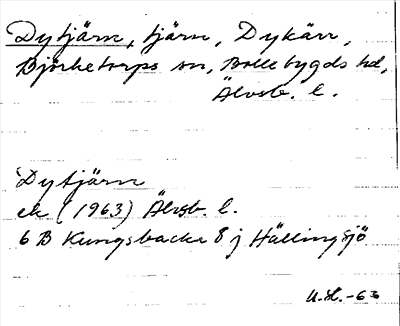 Dytjärn, tjärn, Dykärr,
Björketorps sn, Bollebygds hd,
Älvsb. l.
Dytjärn
ek (1963) Älvsb. l.
6 B Kungsbacka 8 j Hällingsjö
U.H.-63